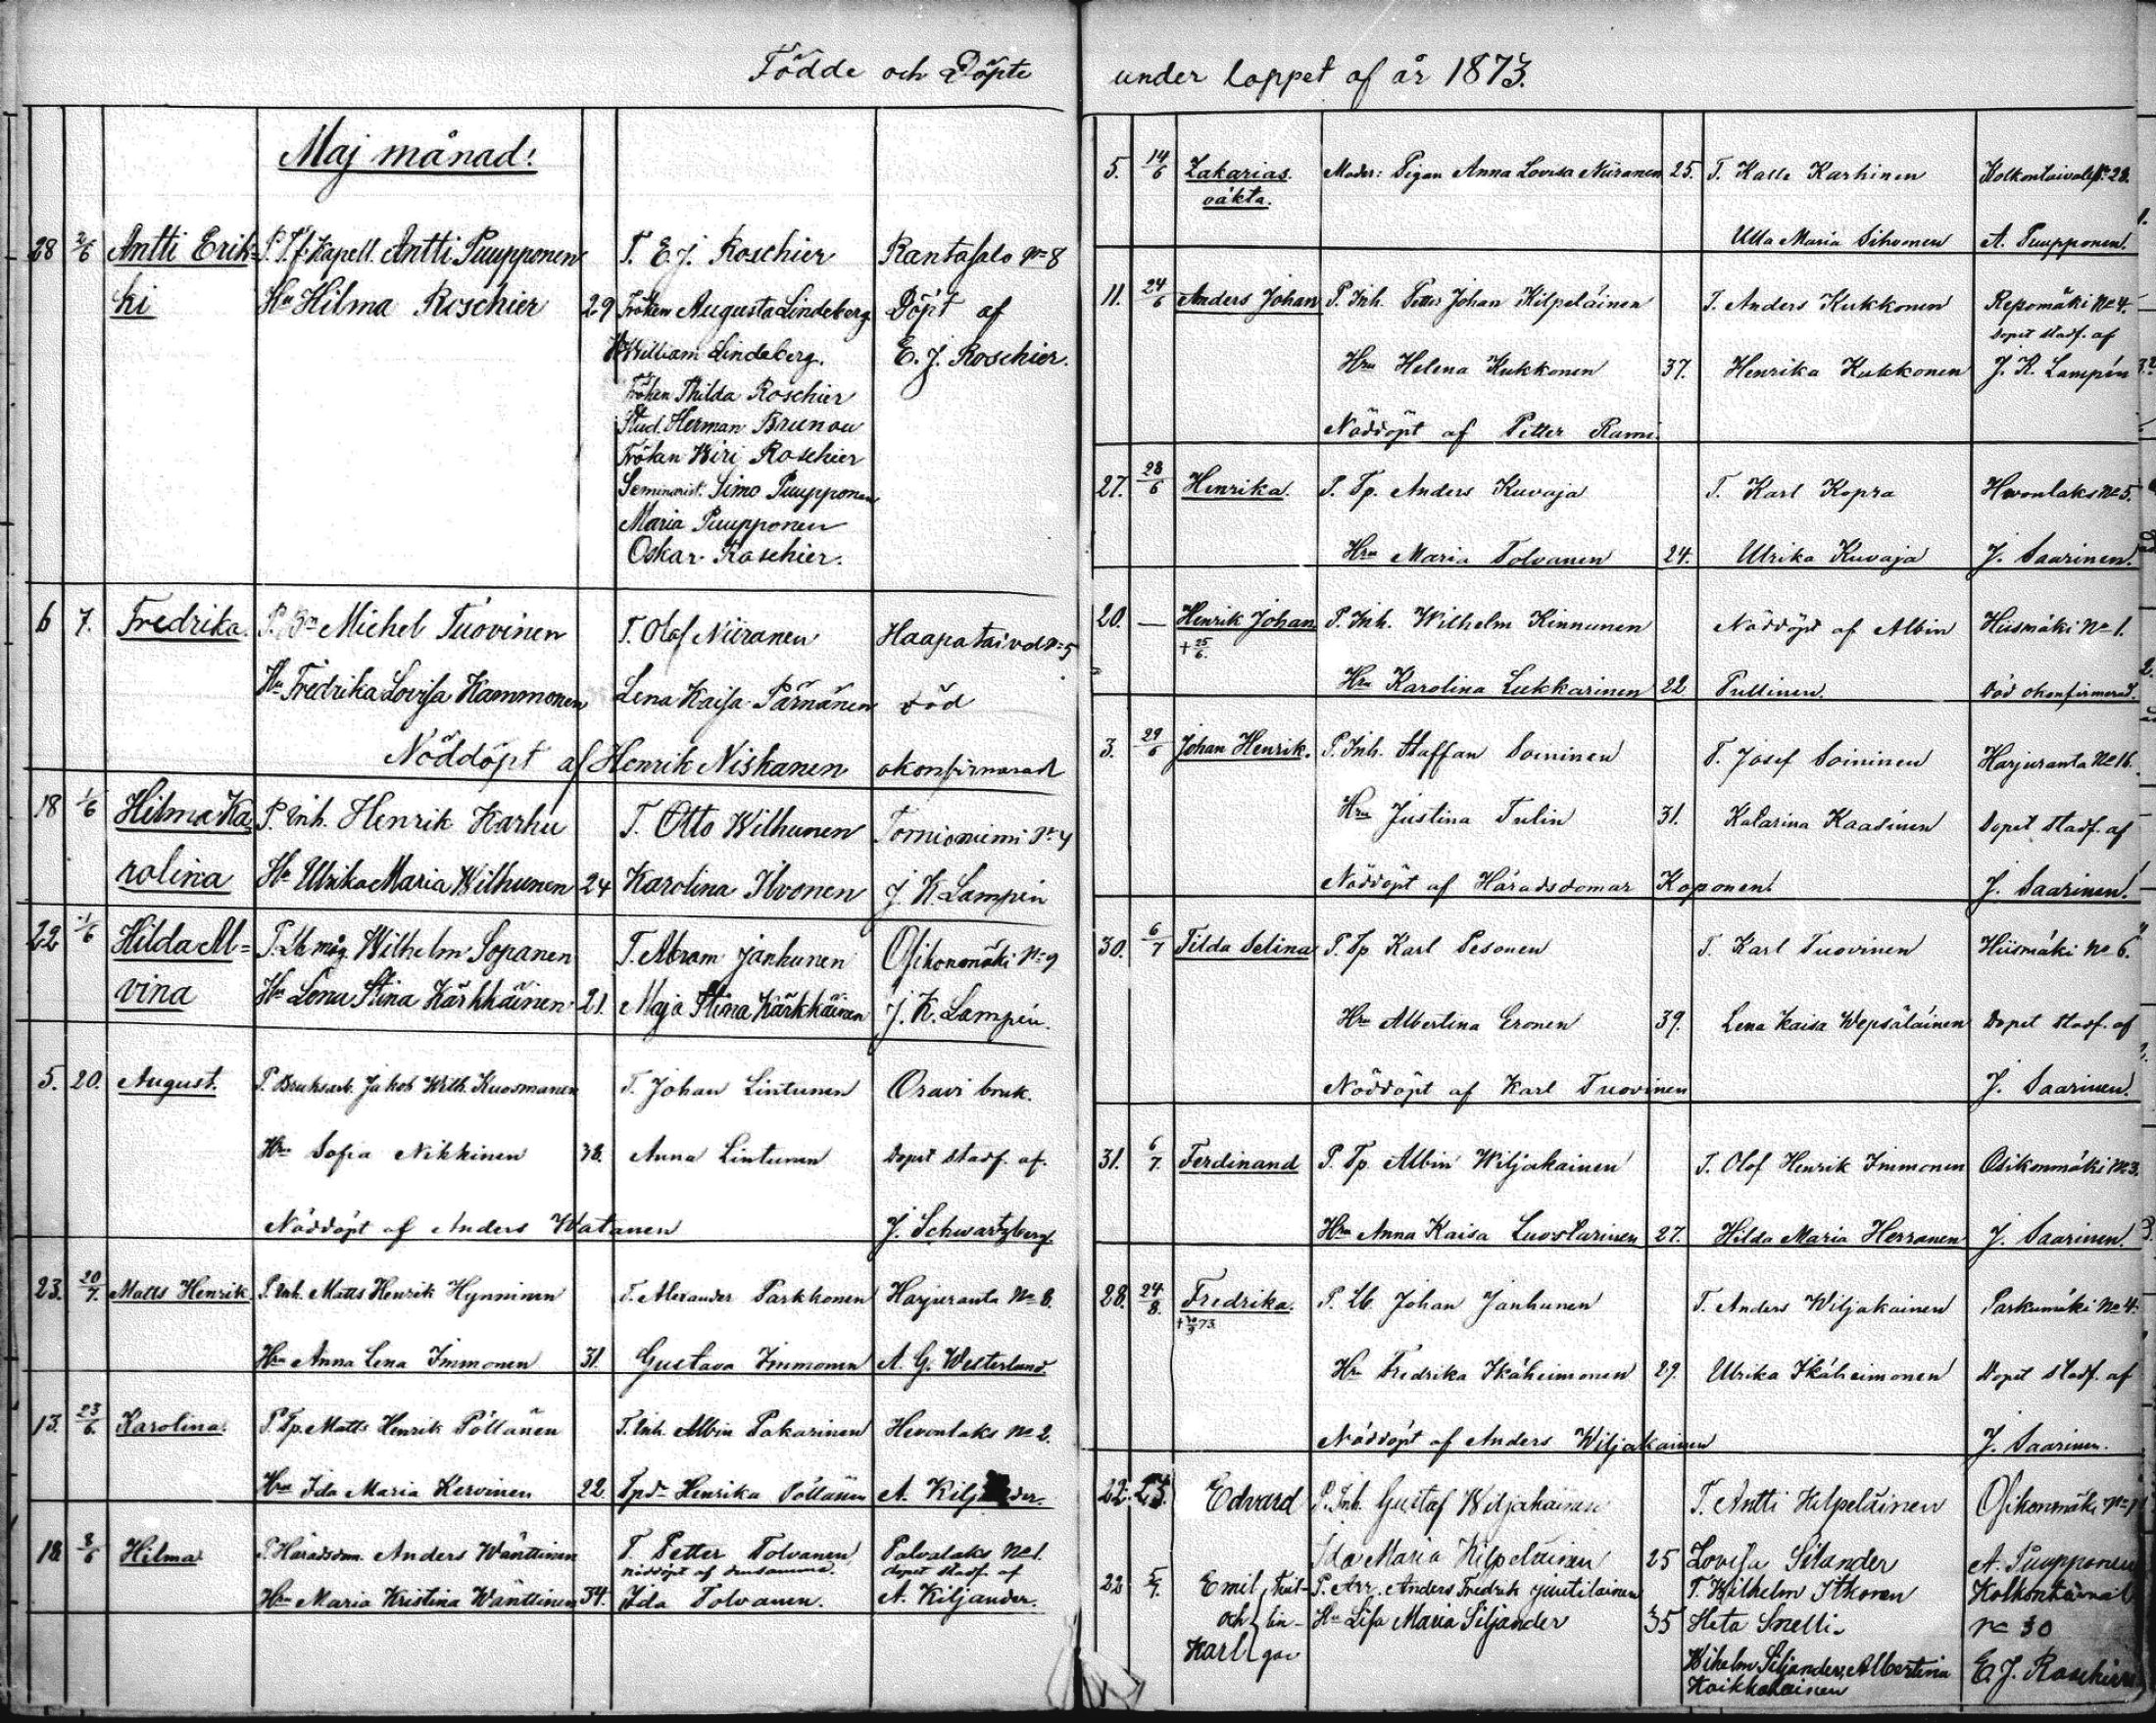 Födde och Döpte
Maj månad!
28 2/6 Antti Erik= P. T.f. Kapell. Antti Puupponen T. E. J. Roschier Rantasalo No 8
ki Hu Hilma Roschier 29 Fröken Augusta Lindeberg Döpt af
William Lindeberg. E. J. Roschier.
Fröken Thilda Roschier
Stud. Herman Brunou
Fröken Wiri Roschier
Seminarist. Simo Puupponen
Maria Puupponen
Oskar Roschier.
6 7. Fredrika. P. Bn Michel Tuovinen T. Olof Niiranen Haapataival No 5
Hu Fredrika Lovisa Kammonen Lena Kaisa Pärnänen död
Nöddöpt af Henrik Niskanen okonfirmerad
18 1/6 Hilma Ka P. Inh. Henrik Karhu T. Otto Wilhunen Tornioniemi No 4
rolina Hu Ulrika Maria Wilhunen 24 Karolina Ilvonen J. K. Lampén
22 1/6 Hilda Al= P. Lb. måg Wilhelm Sopanen T. Abram Janhunen Osikonmäki No 9
vina Hu Lena Stina Kärkkäinen 21. Maja Stina Kärkkäinen J. K. Lampén.
5. 20. August. P. Bruksarb. Jakob Wilh. Kuosmanen T. Johan Lintunen Oravi bruk.
Hru Sofia Nikkinen 38. Anna Lintunen Dopet stadf. af.
Nöddöpt af Anders Watanen J. Schwartzberg.
23. 20/7. Matts Henrik P. Inh. Matts Henrik Hynninen T. Alexander Parkkonen Harjuranta No 8.
Hru Anna Lena Immonen 31. Gustava Immonen A. G. Westerlund.
13. 23/6. Karolina. P. Tp. Matts Henrik Pöllänen T. Inh. Albin Pakarinen Hevonlaks No 2.
Hru Ida Maria Kervinen 22. Tpd. Henrika Pöllänen A. Kiljander.
18 8/6 Hilma P. Häradsdom. Anders Wänttinen T. Petter Tolvanen Palvalaks No 1.
nöddöpt af densamme. dopet stadf. af
Hru Maria Kristina Wänttinen 34. Ida Tolvanen. A. Kiljander.
under loppet af år 1873.
5. 14/6 Zakarias. Moder: Pigan Anna Lovisa Niiranen 25. T. Kalle Karhinen Kolkontaival No 28.
oäkta.
Ulla Maria Sihvonen A. Puupponen.
11. 24/6 Anders Johan P. Inh. Petter Johan Kilpeläinen T. Anders Kukkonen Repomäki No 4.
Dopet stadf. af
Hru Helena Kukkonen 37. Henrika Kukkonen J. K. Lampén
Nöddöpt af Petter Rami.
27. 28/6 Henrika. P. Tp. Anders Kuvaja T. Karl Kopra Hevonlaks No 5.
Hru Maria Tolvanen 24. Ulrika Kuvaja J. Saarinen.
20. — Henrik Johan P. Inh. Wilhelm Kinnunen Nöddöpt af Albin Hiismäki No 1.
+ 25/6.
Hru Karolina Lukkarinen 22 Pullinen. Död okonfirmerad.
3. 29/6 Johan Henrik. P. Inh. Staffan Soininen T. Josef Soininen Harjuranta No 16.
Hru Justina Tulin 31. Katarina Kaasinen Dopet stadf. af
Nöddöpt af Häradsdomar Koponen. J. Saarinen.
30. 6/7 Tilda Selina P. Tp Karl Pesonen T. Karl Tuovinen Hiismäki No 6.
Hru Albertina Eronen 39. Lena Kaisa Wepsäläinen Dopet stadf. af
Nöddöpt af Karl Tuovinen J. Saarinen.
31. 6/7. Ferdinand P. Tp. Albin Wiljakainen T. Olof Henrik Immonen Osikonmäki No 3.
Hru Anna Kaisa Luostarinen 27. Hilda Maria Herranen J. Saarinen.
28. 24/8. Fredrika. P. Lb. Johan Janhunen T. Anders Wiljakainen Parkumäki No 4.
Hru Fredrika Ikäheimonen 29. Ulrika Ikäheimonen Dopet stadf. af
Nöddöpt af Anders Wiljakainen J. Saarinen.
22. 25. Edvard P. Inh. Gustaf Wiljakainen T. Antti Kilpeläinen Osikonmäki
Ida Maria Kilpeläinen 25 Lovisa Silander A. Puupponen
22 Emil tvil- P. Arr. Anders Fredrik Juutilainen T. Wilhelm Itkonen Kolkontaival
och lin- Hu Lisa Maria Siljander 35 Heta Snelli. No 30
Karl gar Wilhelm Siljander, Albertina E. J. Roschier
Kaikkolainen